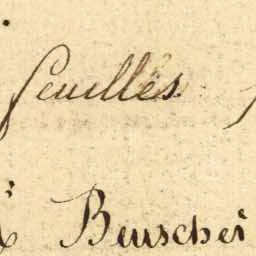 feuilles
Beuscher